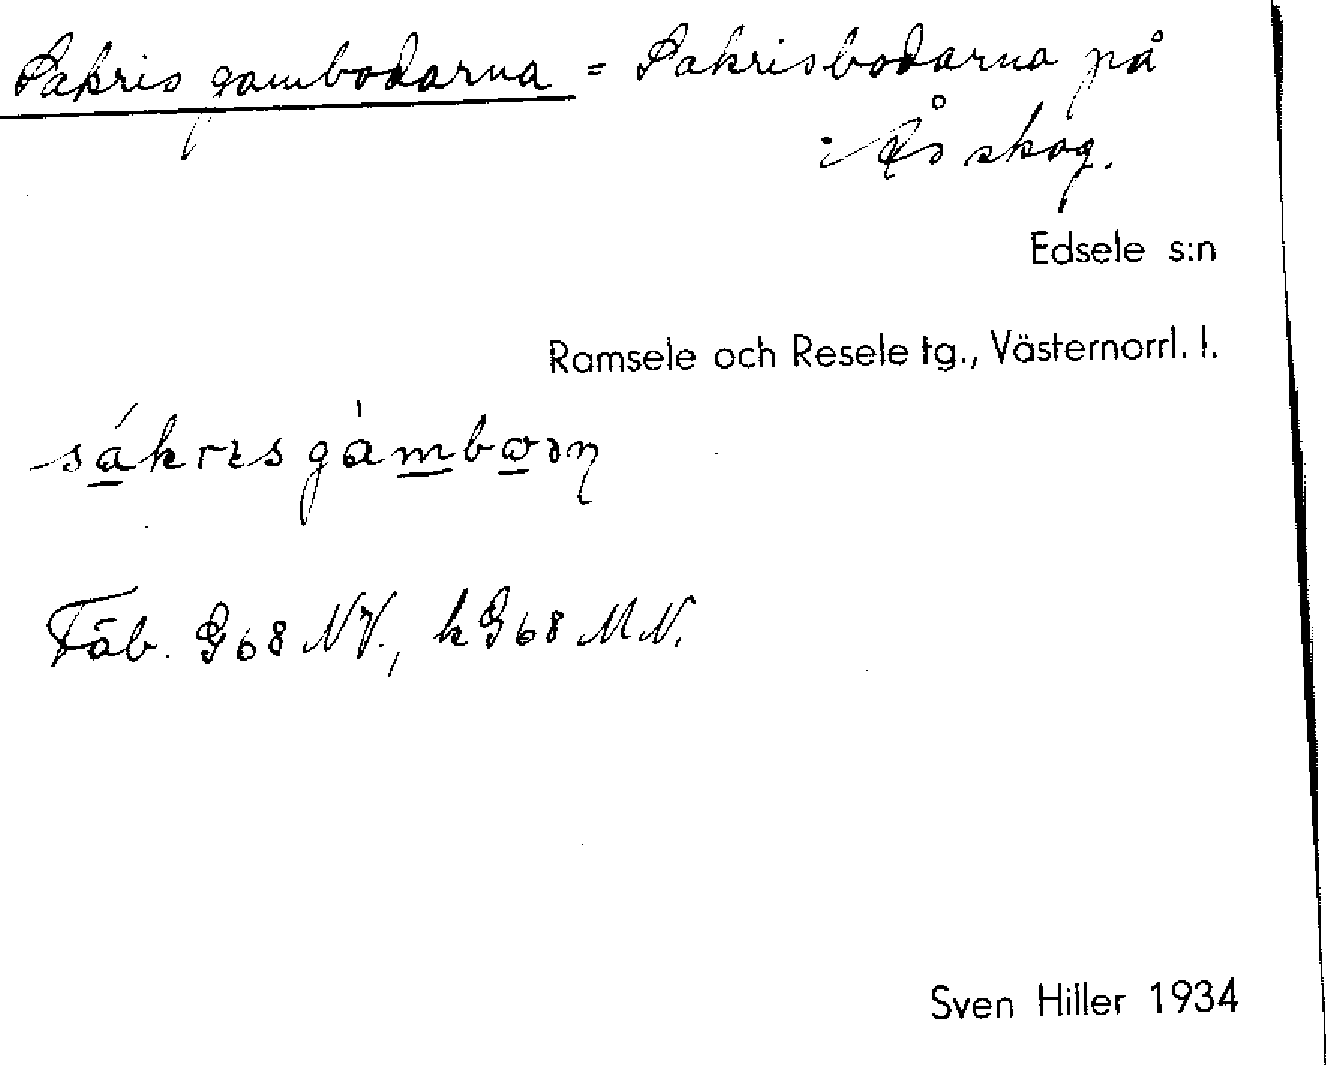 Sakris gambodarna = Sakrisbodarna på
Ås skog.
Edsele s:n
Ramsele och Resele tg., Västernorrl. l.
Fäb. G68 NV., k G68 MN.
Sven Hiller 1934